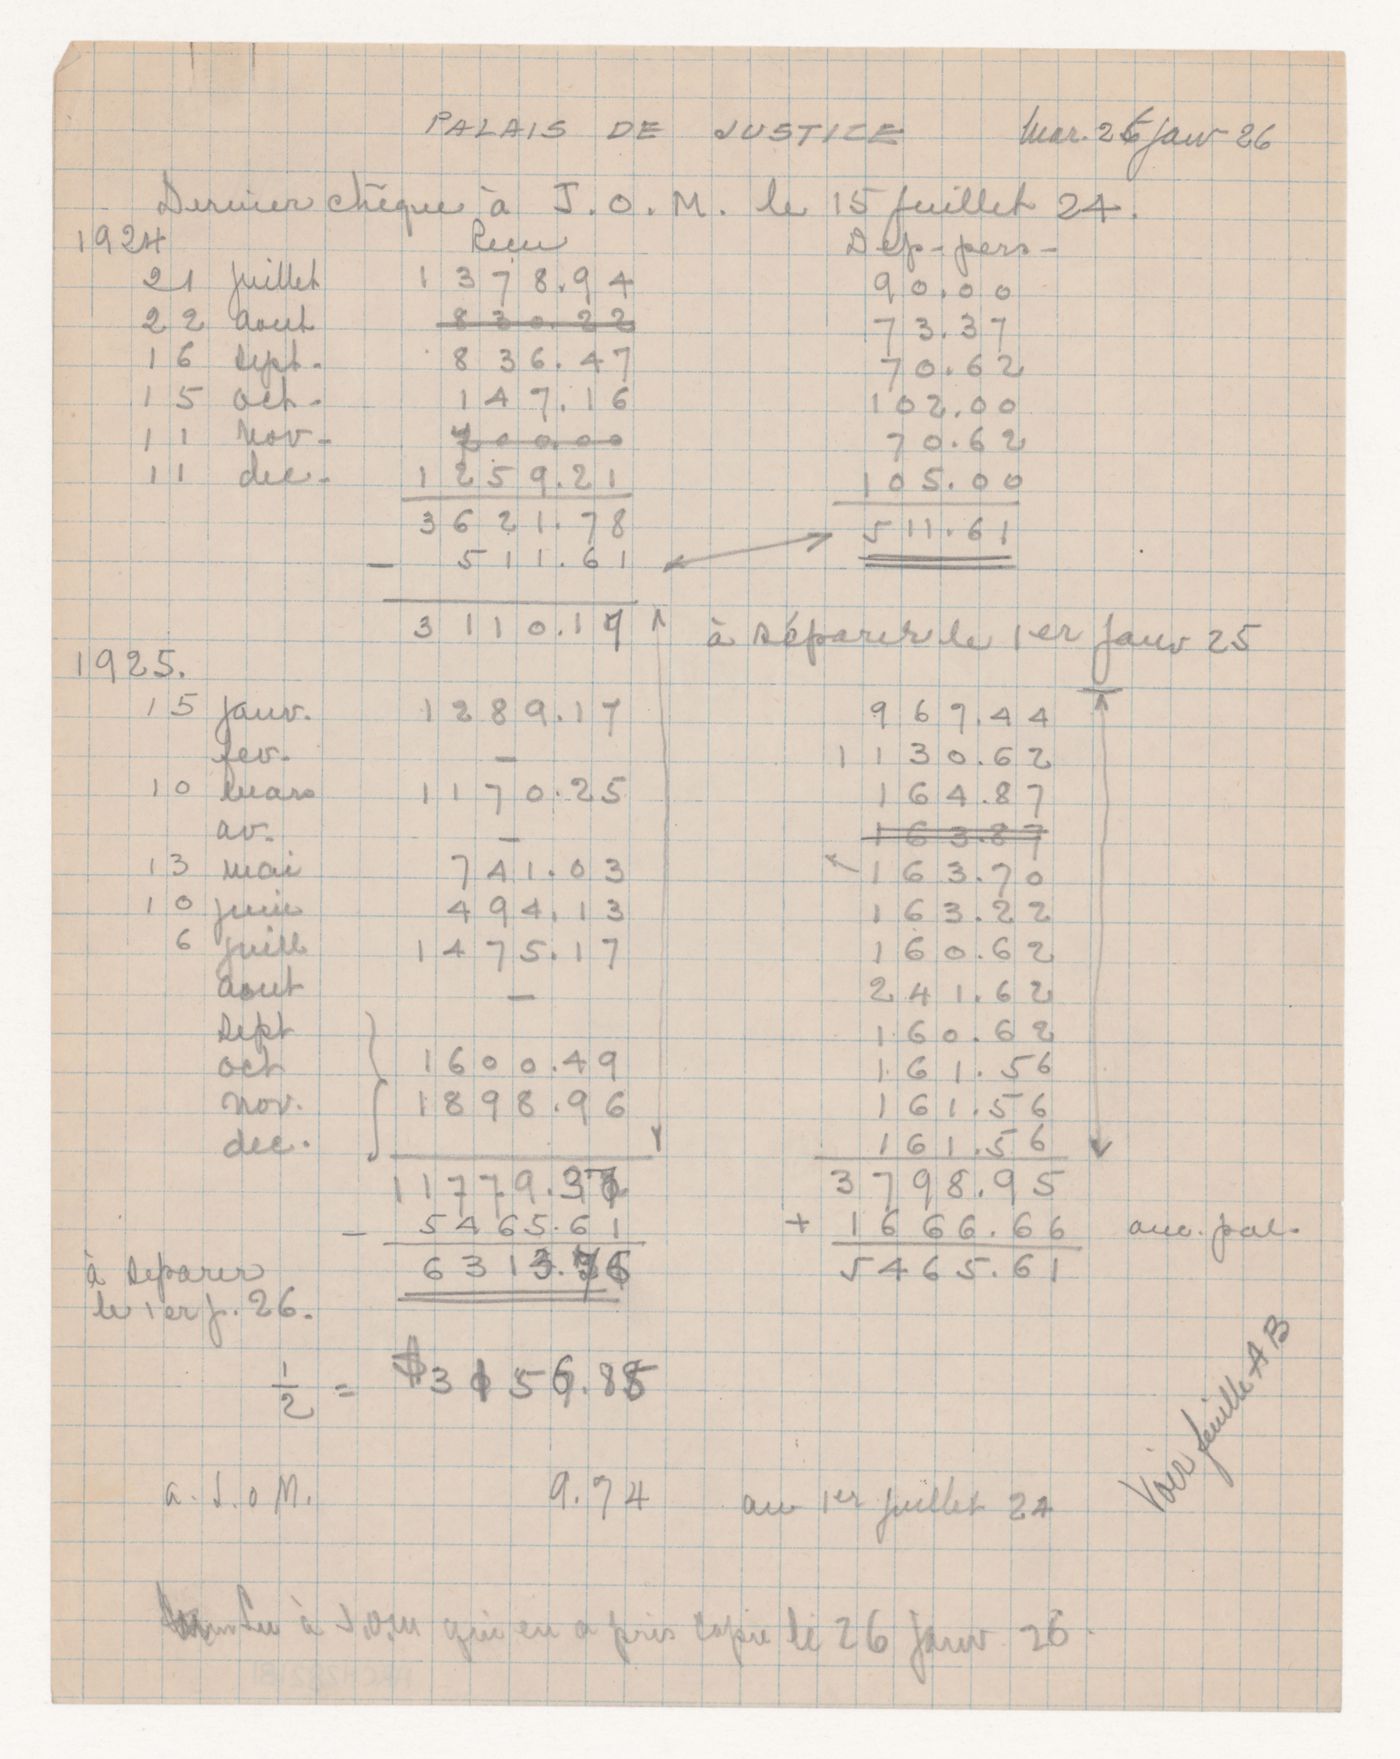 PALAIS DE JUSTICE Mar. 26 janv 26
Dernier chèque à J.O.M. le 15 juillet 24.
1924 Recu Dep-pers-
21 juillet 1378.94 90.00
22 aout 830.22 73.37
16 sept. 836.47 70.62
15 oct. 147.16 102.00
11 nov- 200.00 70.62
11 dec. 1259.21 105.00
3621.78 511.61
- 511.61
3110.17 à séparer le 1er janv 25
1925.
15 janv. 1289.17 967.44
fev. - 1130.62
10 mars 1170.25 164.87
av. - 163.87
13 mai 741.03 163.70
10 juin 494.13 163.22
6 juill 1475.17 160.62
aout - 241.62
sept 160.62
oct 1600.49 161.56
nov. 1898.96 161.56
dec. 161.56
11779.37 3798.95
- 5465.61 + 1666.66 anc. pal.
à séparer 6313.76 5465.61
le 1er j. 26.
1/2 = $3156.88
a. J.o M. 9.74 au 1er juillet 24
Voir feuille A B
Lu à J.O.M qui en a pris copie le 26 janv 26.